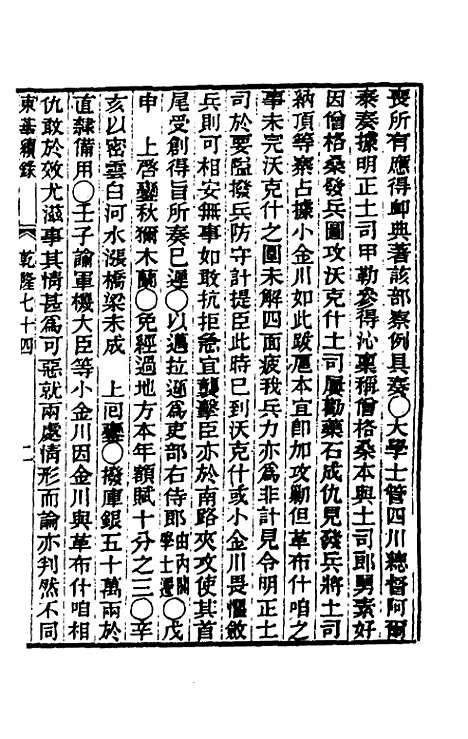 喪所有應得卹典著該部察例具奏〇大學士管四川總督阿爾
泰奏據明正土司甲勒參得沁稟稱僧格桑本與土司郎舅素好
因僧格桑發兵圍攻沃克什土司屢勸藥石成仇見發兵將土司
納頂等寨占據小金川如此跋扈本宜即加攻勦但革布什咱之
事未完沃克什之圍未解四面疲我兵力亦爲非計見令明正土
司於要隘撥兵防守計提臣此時已到沃克什或小金川畏懼斂
兵則可相安無事如敢抗拒急宜襲擊臣亦於南路夾攻使其首
尾受創得旨所奏已遲〇以邁拉遜爲吏部右侍郎由內閣學士遷〇戊
申　上啓鑾秋獮木蘭〇免經過地方本年額賦十分之三〇辛
亥以密雲白河水漲橋梁未成　上回鑾〇撥庫銀五十萬兩於
直隸備用〇壬子諭軍機大臣等小金川因與革布什咱相
仇敢於效尤滋事其情甚爲可惡就兩處情形而論亦判然不同
東華續錄　乾隆七十四　二